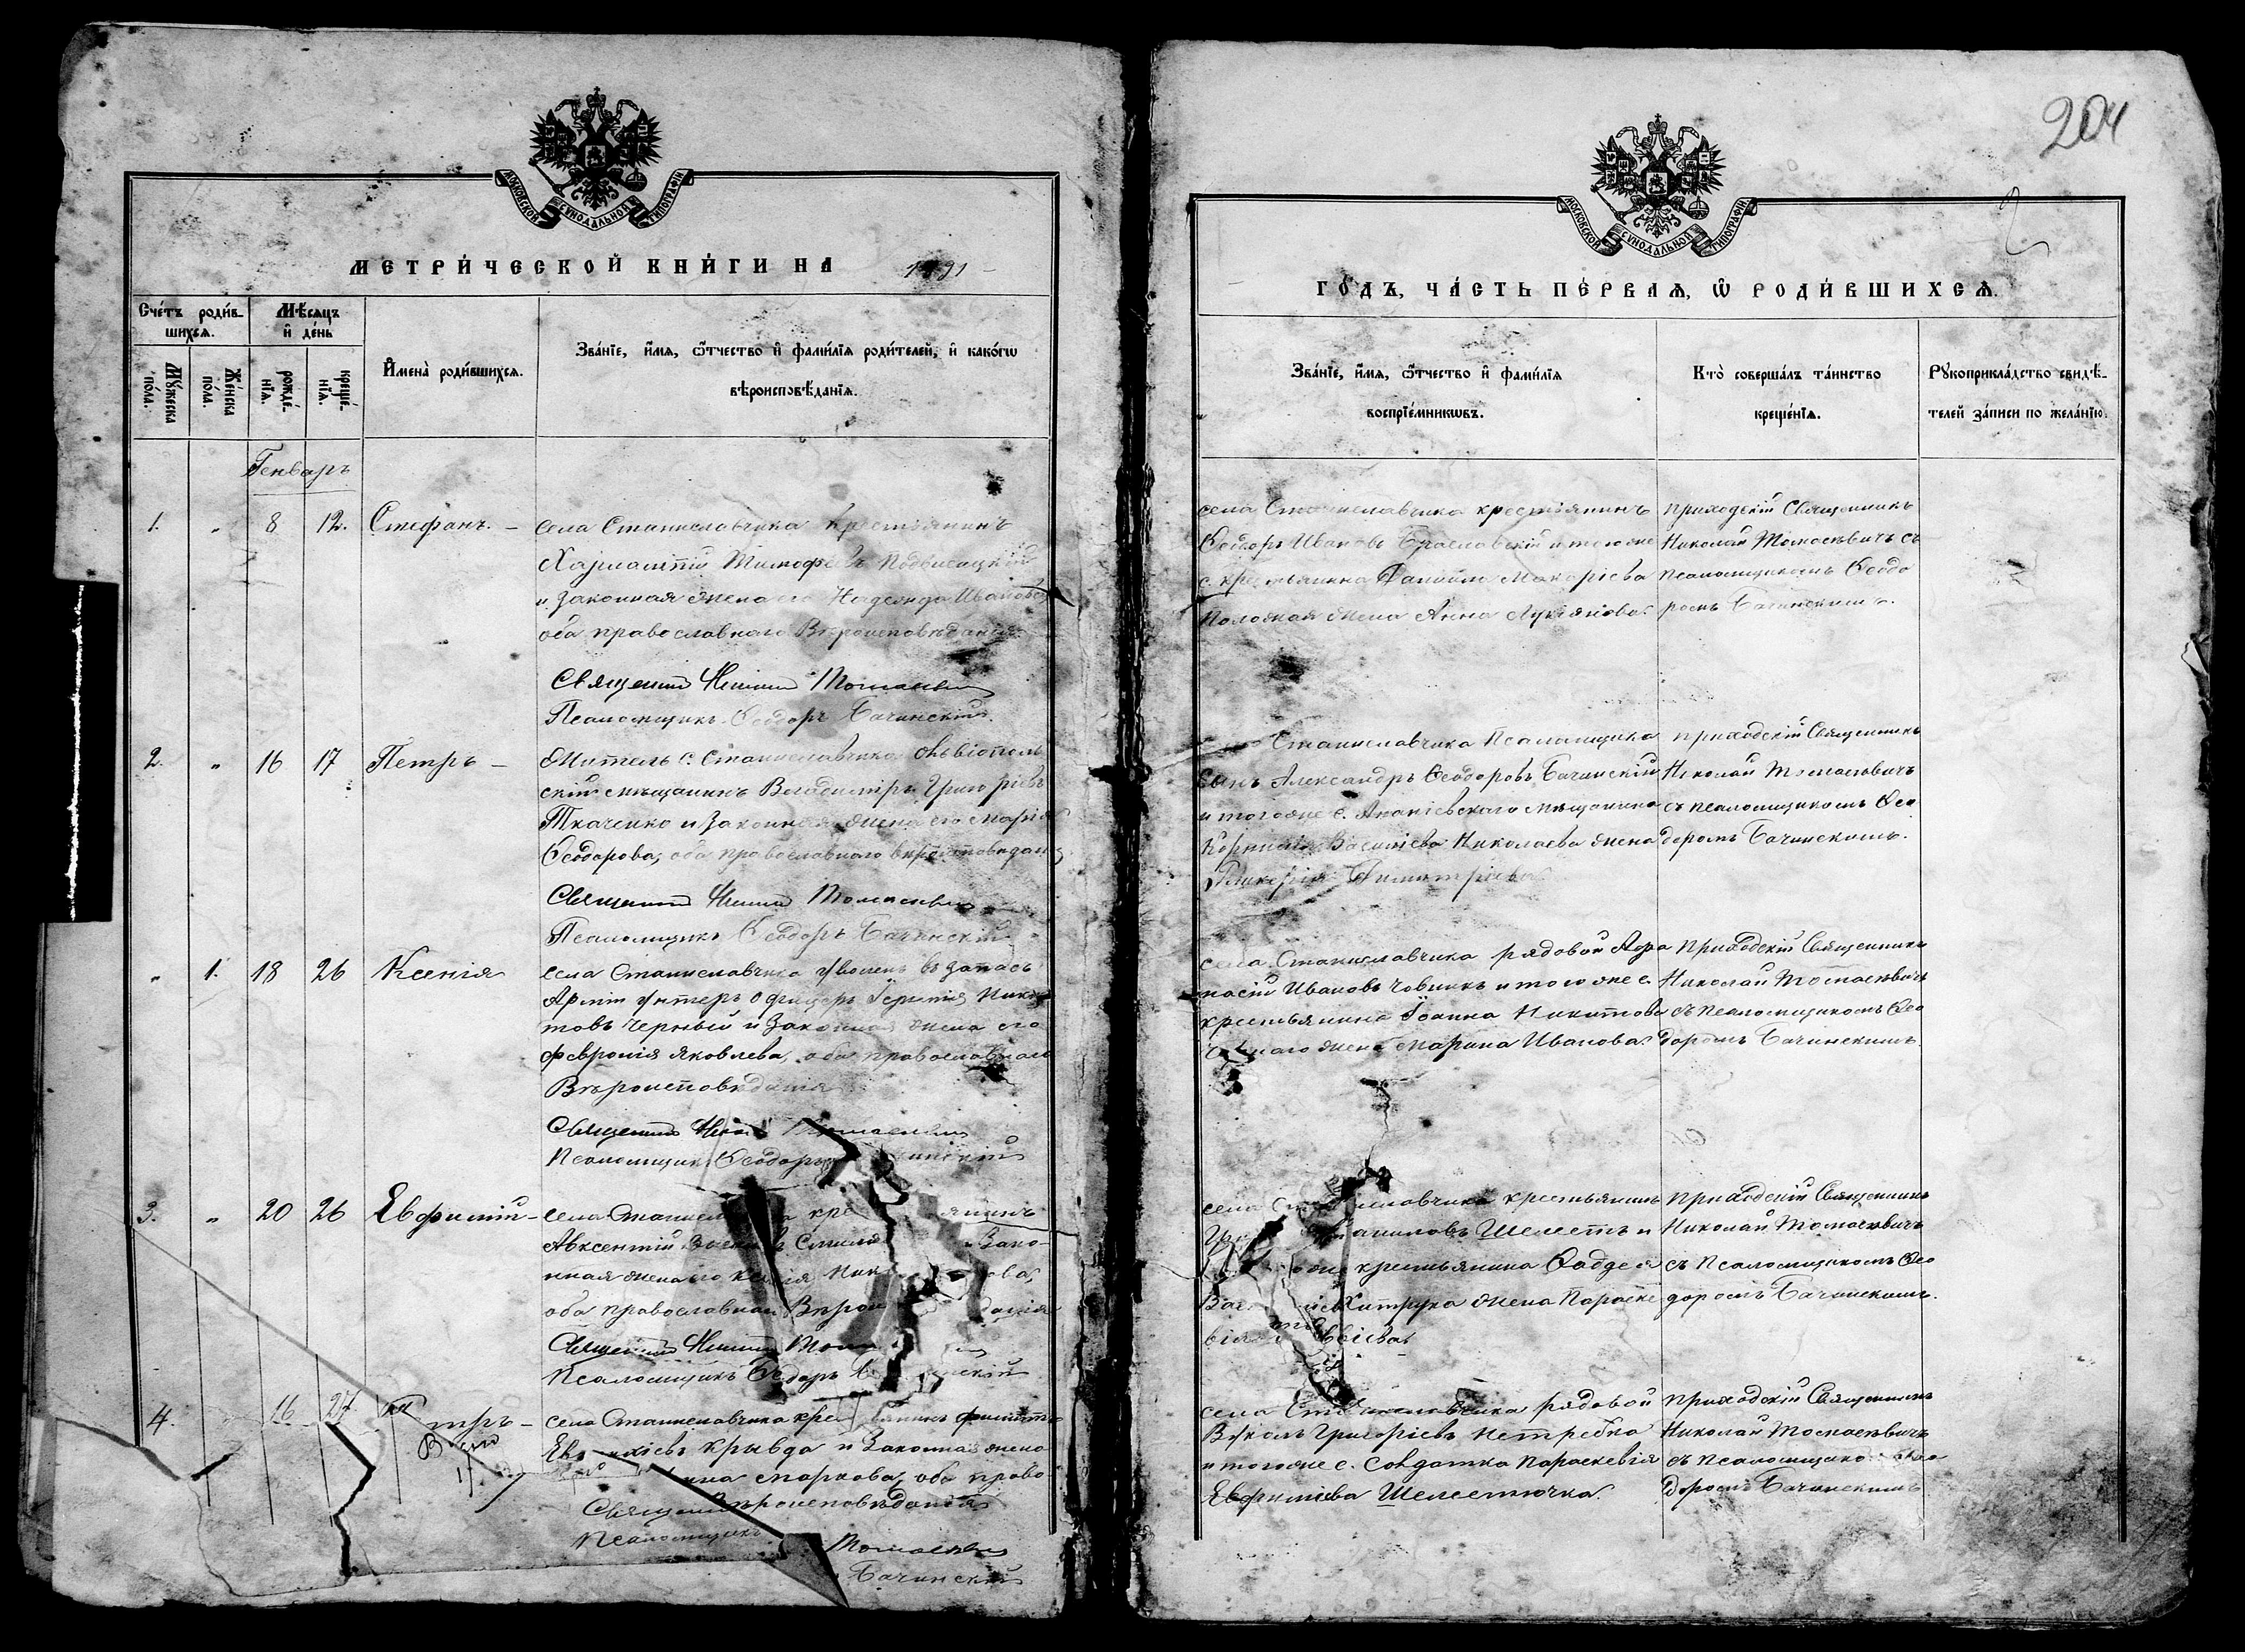 МОСКОВСКОЙ СѴНОДАЛЬНОЙ ТИПОГРАФІИ
МЕТРИ́ЧЕСКОЙ КНИ́ГИ НА 1891
Сче́тъ роди́в-
шихсѧ.
Мꙋ́жеска
по́ла.
Же́нска
по́ла.
Мѣ́сѧцъ
и҆ де́нь
рожде́-
нїѧ.
креще́-
нїѧ.
И҆мена̀ роди́вшихсѧ.
Зва́нїе, и҆́мѧ, ѻ҆́тчество и҆ фами́лїѧ роди́телей, и҆ како́гѡ
вѣроисповѣ́данїѧ.
Генварь
1. " 8 12. Стефанъ. –
села Станиславчика крестьянинъ
Харлампій Тимофѣевъ Подвисоцкій
и законная жена его Надежда Иванова
оба православнаго Вѣроисповѣданія.
Священникъ Николай Томасевичъ
Псаломщикъ Ѳеодоръ Бачинскій.
2. " 16 17 Петръ –
Житель с. Станиславчика Ольвіополь
скій мѣщанинъ Владиміръ Григорьевъ
Ткаченко и законная жена его Марія
Ѳеодорова, оба православнаго вѣроисповѣданія.
Священникъ Николай Томасевичъ
Псаломщикъ Ѳеодоръ Бачинскій
" 1. 18 26 Ксенія
села Станиславчика уволенъ въ запасъ
Арміи унтеръ офицеръ Ники
товъ Черный и Законная жена его
Февронія Яковлева, оба православнаго
Вѣроисповѣданія
Священникъ Николай Томасевичъ
Псаломщикъ Ѳеодоръ
3. " 20 26 Евфимій –
села Станислав кре янинъ
Авксентій Зако-
нная жена его Ксенія
оба православнаго Вѣрои данія
Священникъ Николай
Псаломщикъ Ѳеодоръ
4. 16 27 Петръ –
села Станиславчика крестьянинъ
Крывда и Законная жена
Маркова, оба право
Вѣроисповѣданія
Священникъ
Псаломщикъ
Томасевичъ
Бачинскій
204
2
МОСКОВСКОЙ СѴНОДАЛЬНОЙ ТИПОГРАФІИ
ГО́ДЪ, ЧА́СТЬ ПЕ́РВАѦ, Ѽ РОДИ́ВШИХСѦ.
Зва́нїе, и҆́мѧ, ѻ҆́тчество и҆ фами́лїѧ
воспрїе́мникѡвъ.
Кто̀ соверша́лъ та́инство
креще́нїѧ.
Рꙋкоприкла́дство свидѣ́-
телей за́писи по жела́нїю.
села Станиславчика крестьянинъ
Ѳеодоръ Ивановъ Браславскій и того же
с. крестьянина Даніила Макаріева
жена Анна Лукіянова.
приходскій Священникъ
Николай Томасевичъ съ
псаломщикомъ Ѳеодо
ромъ Бачинскимъ.
Станиславчика Псаломщика
сынъ Александръ Ѳеодоровъ Бачинскій
и того же с. Ананіевскаго мѣщанина
Корнилія Василіева Николаева жена
Гликерія Димитріева
приходскій Священникъ
Николай Томасевичъ
съ псаломщикомъ Ѳео
доромъ Бачинскимъ.
села Станиславчика рядовой Аѳа
насій Ивановъ Човникъ и того же с.
крестьянина Іоанна Никитова
жена Марина Иванова.
Приходскій Священникъ
Николай Томасевичъ
съ псаломщикомъ Ѳео
доромъ Бачинскимъ.
села славчика крестьянинъ
Даниловъ Шелестъ и
же крестьянина Ѳаддея
Хитрука жена Параске
вія
приходскій Священникъ
Николай Томасевичъ
съ Псаломщикомъ Ѳео
доромъ Бачинскимъ.
села Станиславчика рядовой
Вуколъ Григоріевъ Нетребка
и того же с. Солдатка Параскевія
Евфиміева Шелестючка.
приходскій Священникъ
Николай Томасевичъ
съ псаломщикомъ Ѳео
доромъ Бачинскимъ